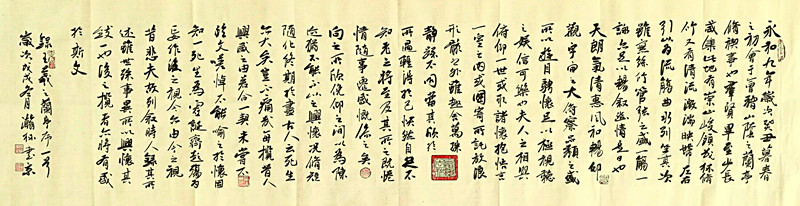 永和九年歲在癸丑暮春
之初會于會稽山陰之蘭亭
脩稧事也羣賢畢至少長
咸集此地有崇山峻領茂林脩
竹又有清流激湍映帶左右
引以為流觴曲水列坐其次
雖無絲竹管弦之盛一觴一
詠亦足以暢敘幽情是日也
天朗氣清惠風和暢仰
觀宇宙之大俯察品類之盛
所以遊目騁懷足以極視聽
之娛信可樂也夫人之相與
俯仰一世或取諸懷抱悟言
一室之內或因寄所託放浪
形骸之外雖趣舍萬殊
靜躁不同當其欣於
所遇蹔得於己快然自足不
知老之將至及其所之既惓
情隨事遷感慨係之矣
向之所欣俛仰之間以為陳
迹猶不能不以之興懷況脩短
隨化終期於盡古人云死生
亦大矣豈不痛哉每攬昔人
興感之由若合一契未嘗不
臨文嗟悼不能喻之於懷固
知一死生為虛誕齊彭殤為
妄作後之視今亦由今之視
昔悲夫故列敘時人錄其所
述雖世殊事異所以興懷其
致一也後之攬者亦將有感
於斯文
羲之蘭亭序
歲次戊戌冬月